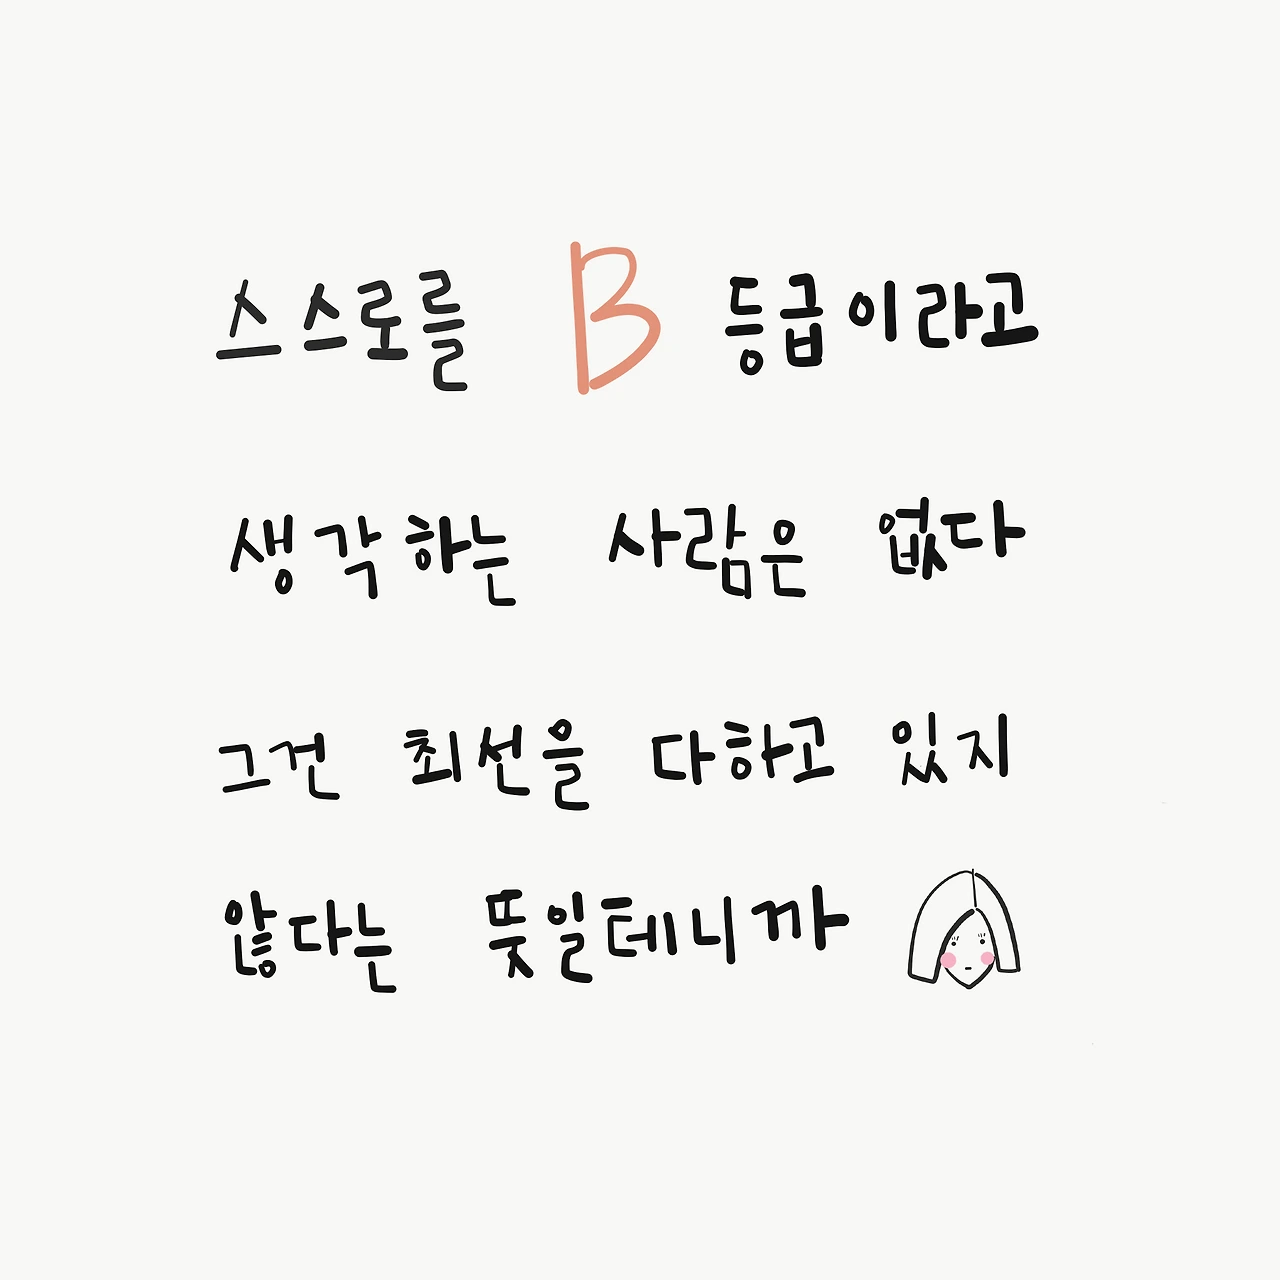 스스로를 B 등급이라고
생각하는 사람은 없다
그건 최선을 다하고 있지
않다는 뜻일테니까